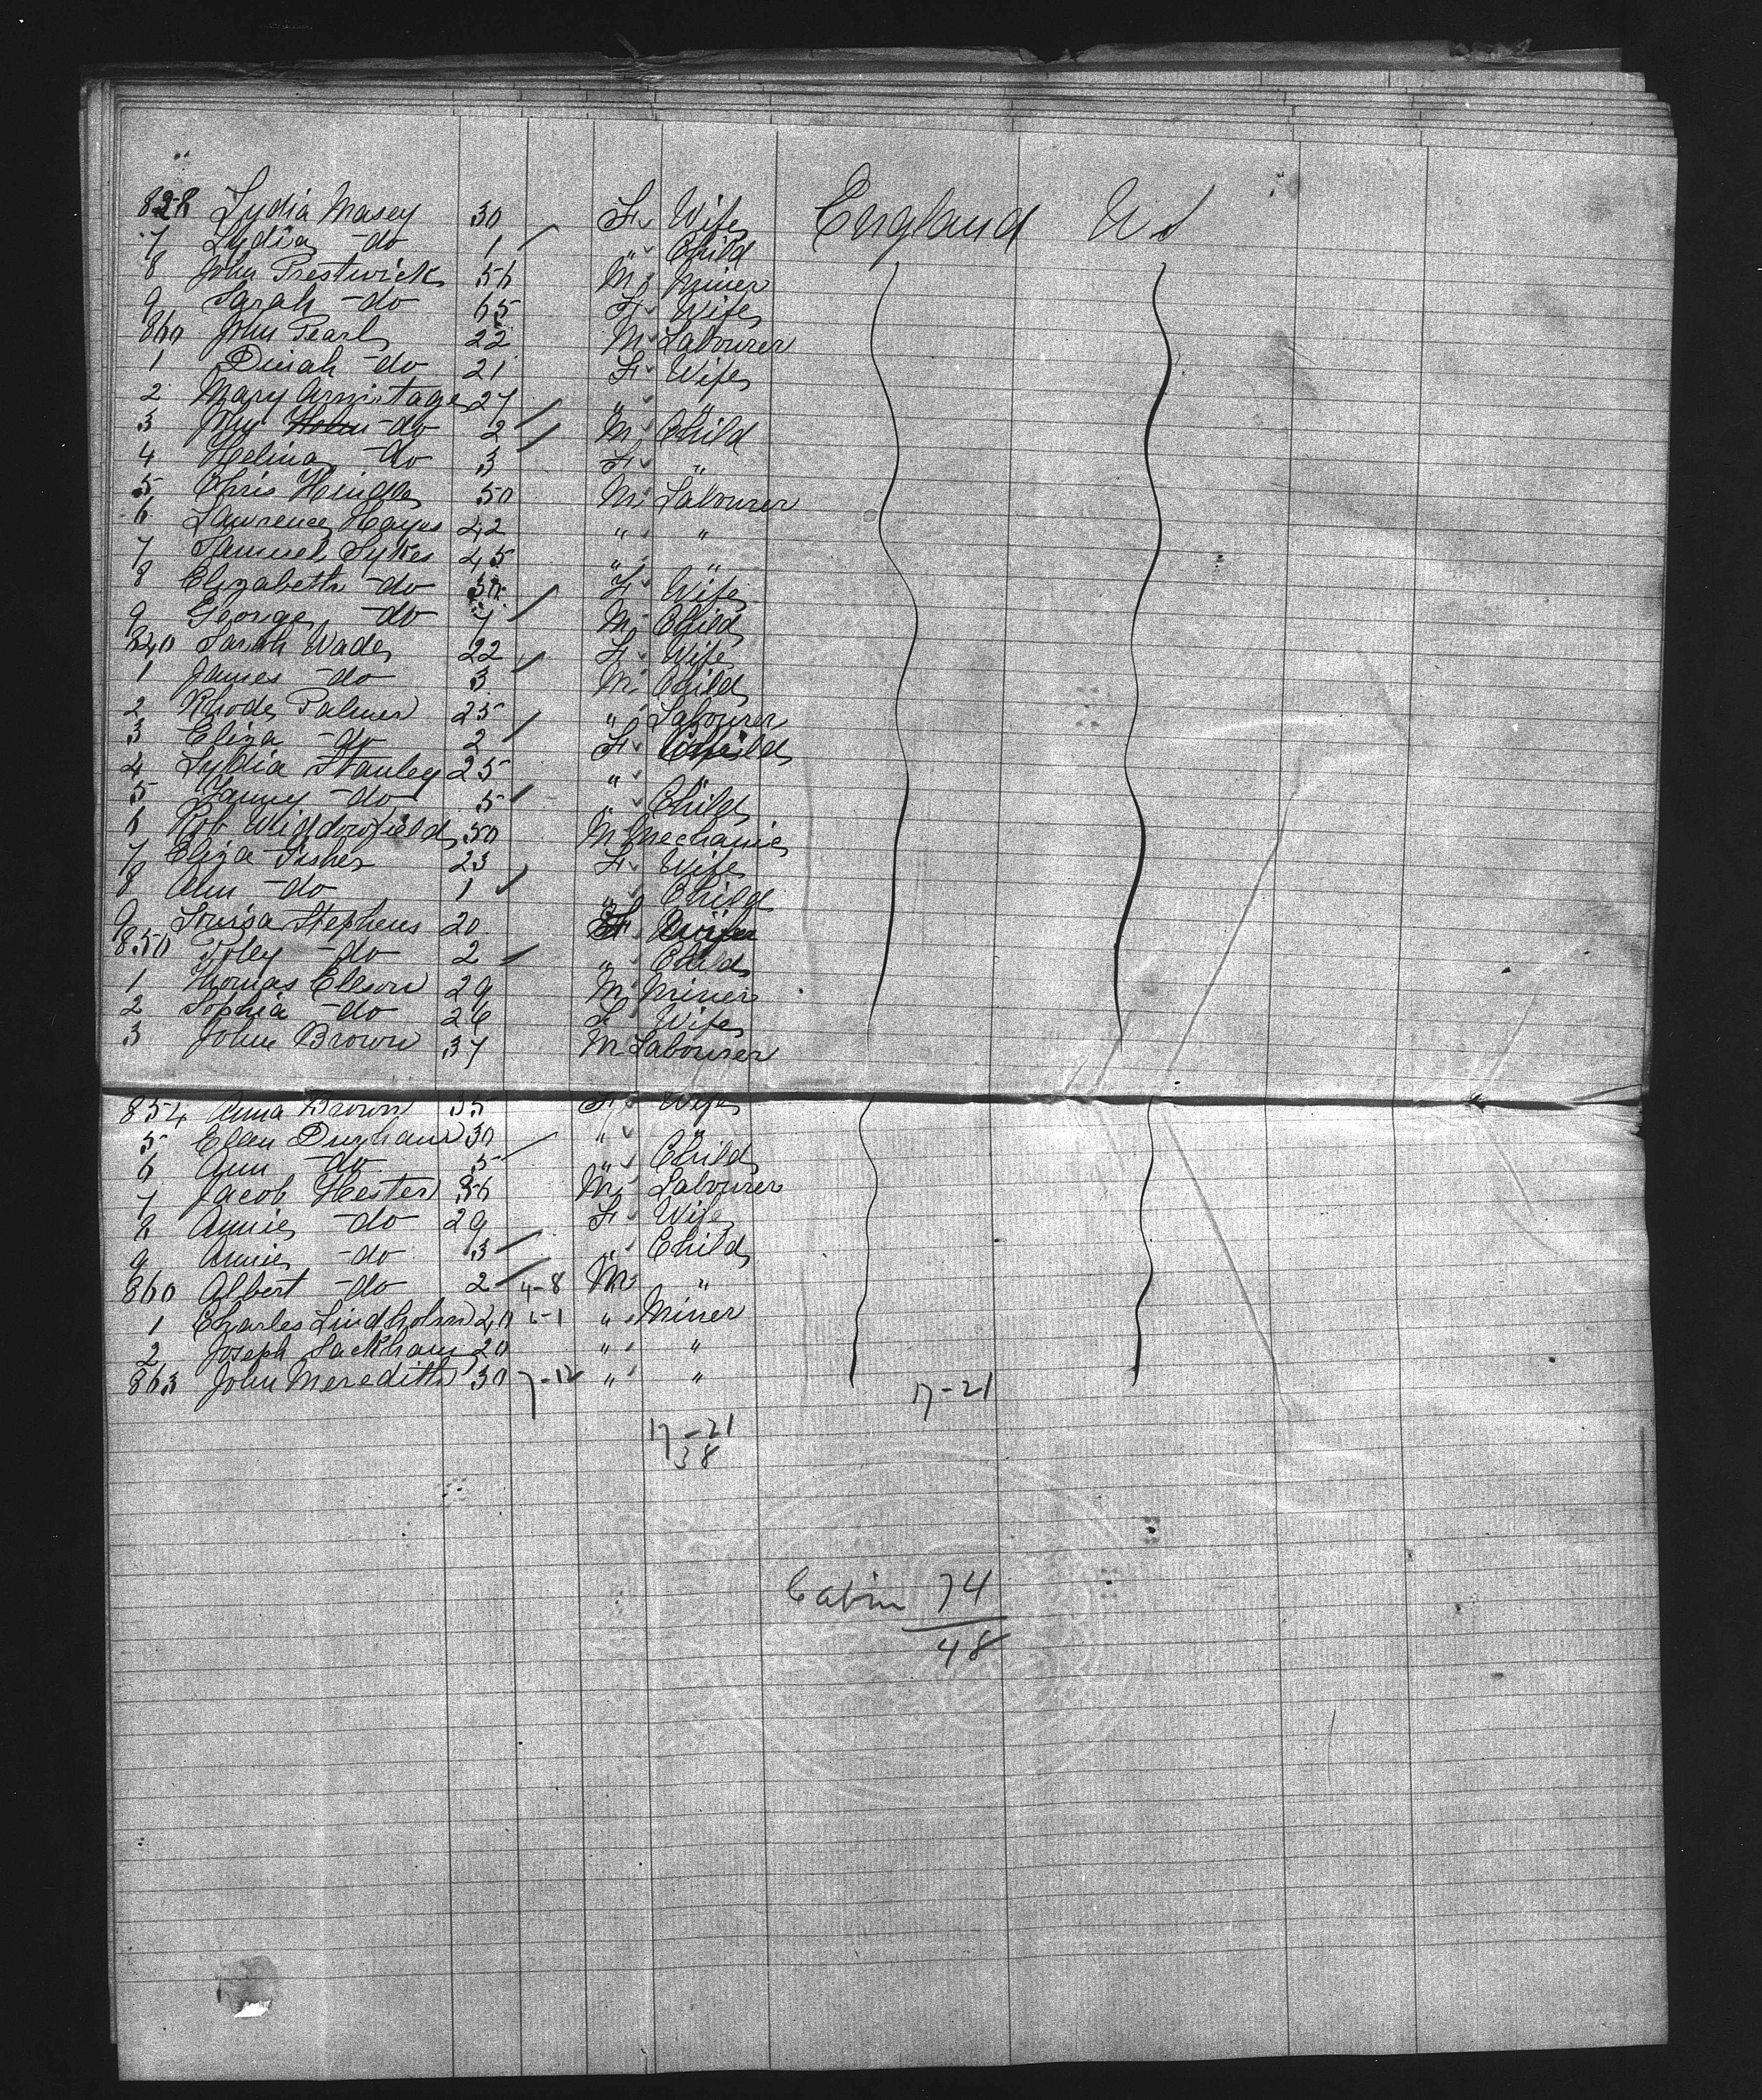 828 Lydia Masey 30 F Wife England U S
7 Lydia - do 1 " Child
8 John Prestwick 56 M Miner
9 Sarah - do 65 F Wife
860 John Pearl 22 M Labourer
1 Dinah - do 21 F Wife
2 Mary Armitage 27 " "
3 - do 2 M Child
4 Helina - do 3 F "
5 Chris 50 M Labourer
6 Lawrence Hayes 42 " "
7 Samuel Sykes 45 " "
8 Elizabeth - do F Wife
9 George - do 7 M Child
840 Sarah Wade 22 F Wife
1 James - do 3 M Child
2 Rhode Palmer 25 " Labourer
3 Eliza - do 2 F Child
4 Lydia Stanley 25 " "
5 Fanny - do 5 " Child
6 Rob 50 M Mechanic
7 Eliza Fisher 23 F Wife
8 Ann - do 1 " Child
9 Louisa Stephens 20 F Wife
850 - do 2 " Child
1 Thomas Elison 29 M Miner
2 Sophia - do 26 F Wife
3 John Brown 37 M Labourer
854 Anna Brown 35 F Wife
5 Ellen Durham 30 " "
6 Ann - do 5 " Child
7 Jacob Hester 36 M Labourer
8 Annie - do 29 F Wife
9 Annie - do 3 " Child
860 Albert - do 2 4-8 M "
1 Charles Lindholm 20 5-1 " Miner
2 Joseph Sackham 20 " "
863 John Meredith 30 7-12 " "
17-21
17-21
38
Cabin 74
48